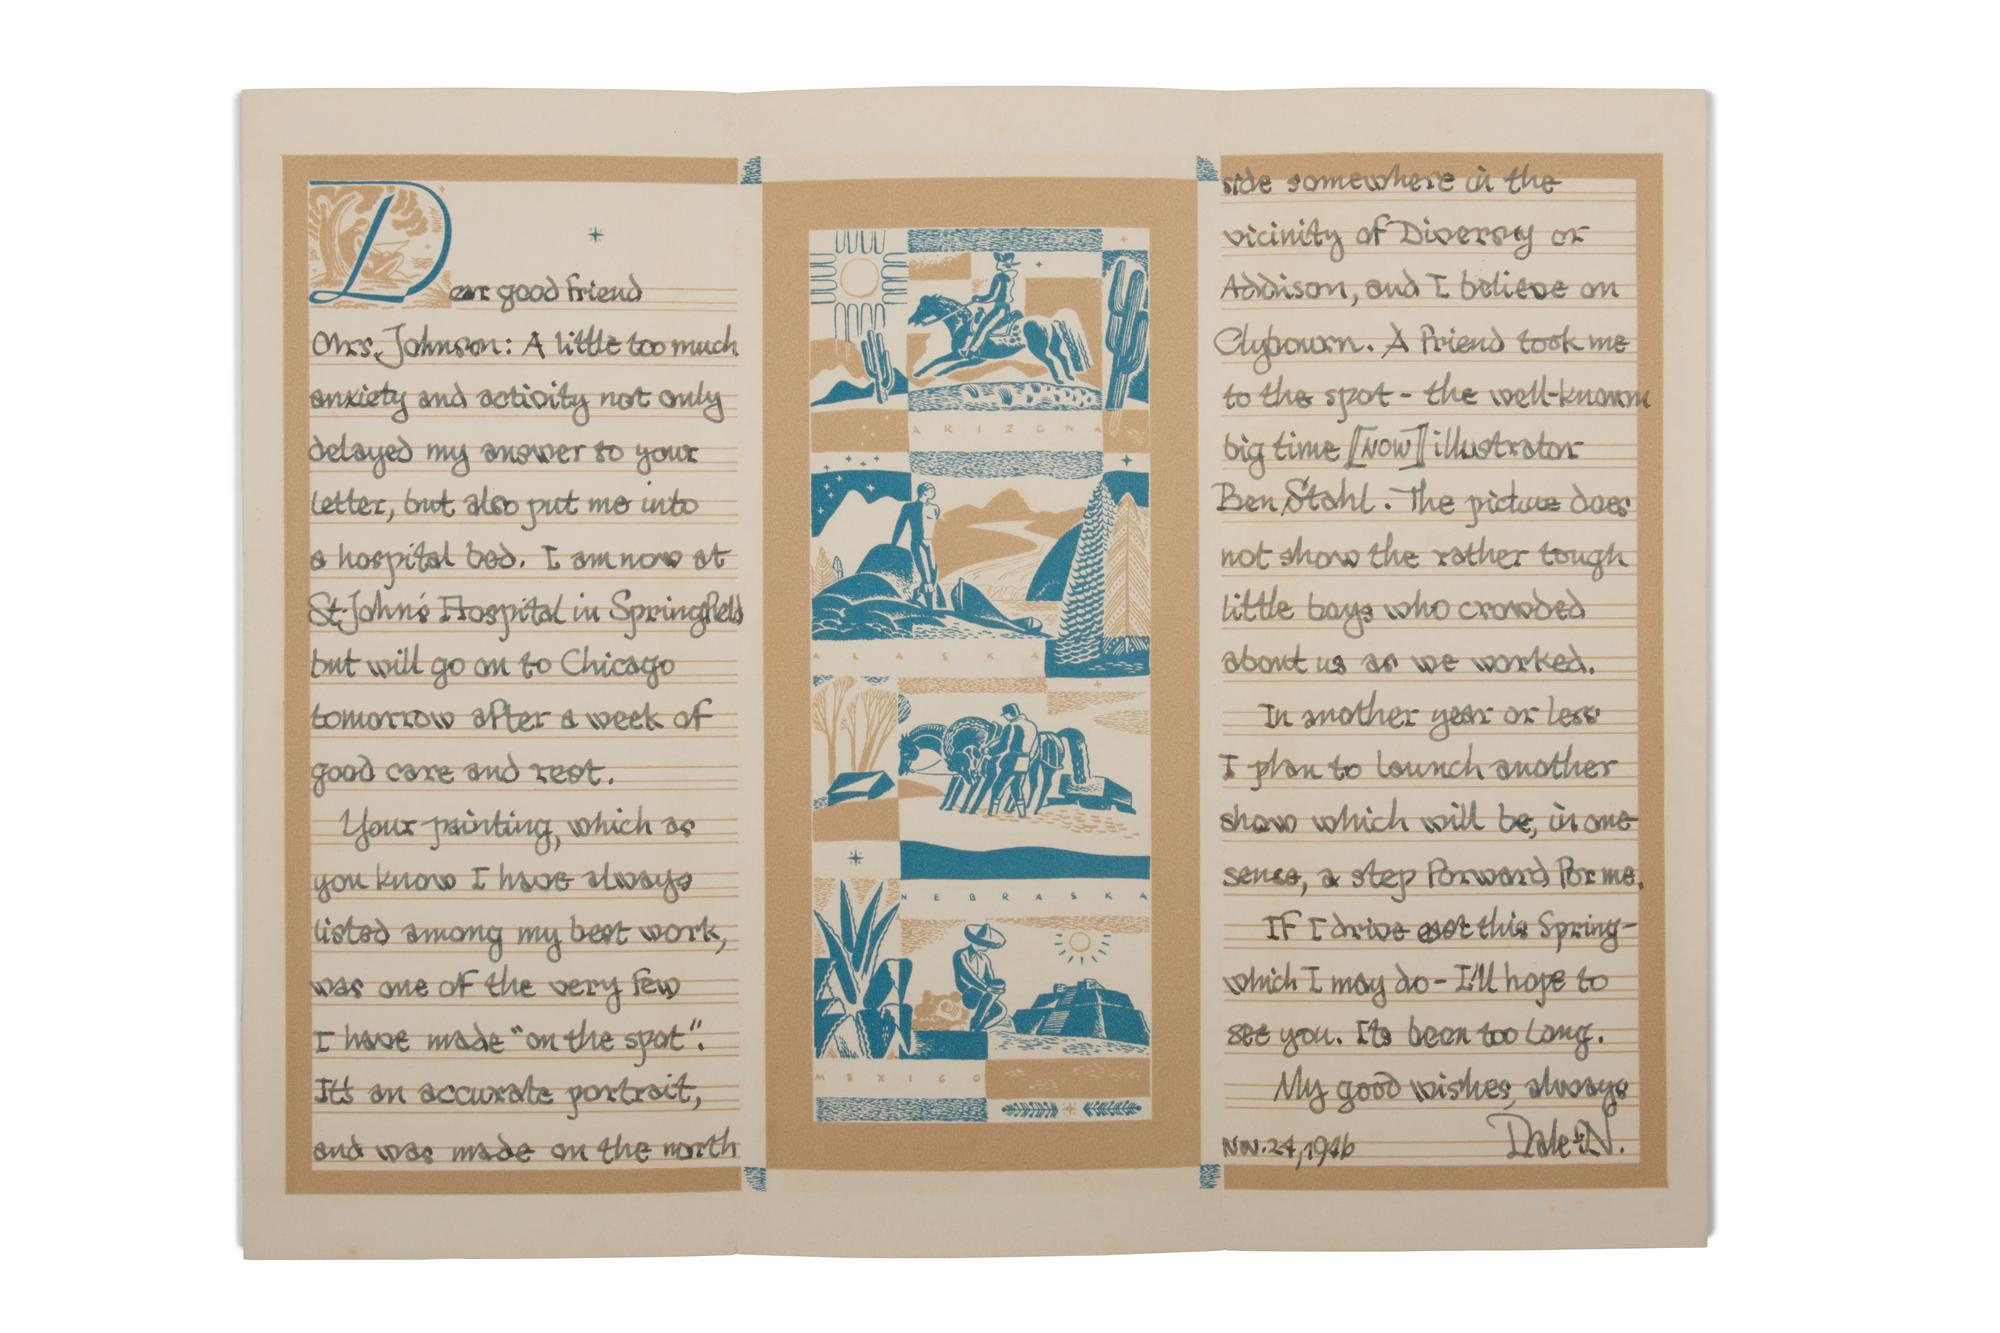 Dear good friend
Mrs. Johnson: A little too much
anxiety and activity not only
delayed my answer to your
letter, but also put me into
a hospital bed. I am now at
St. John's Hospital in Springfield
but will go on to Chicago
tomorrow after a week of
good care and rest.
Your painting, which as
you know I have always
listed among my best work,
was one of the very few
I have made "on the spot".
It's an accurate portrait,
and was made on the north
ARIZONA
ALASKA
NEBRASKA
MEXICO
side somewhere in the
vicinity of Diversey or
Addison, and I believe on
Clybourn. A friend took me
to the spot - the well-known
big time [[NOW]] illustrator
Ben Stahl. The picture does
not show the rather tough
little boys who crowded
about us as we worked.
In another year or less
I plan to launch another
show which will be, in one
sense, a step forward for me.
If I drive east this Spring-
which I may do - I'll hope to
see you. Its been too long.
My good wishes, always
Nov. 24, 1946 Dale N.